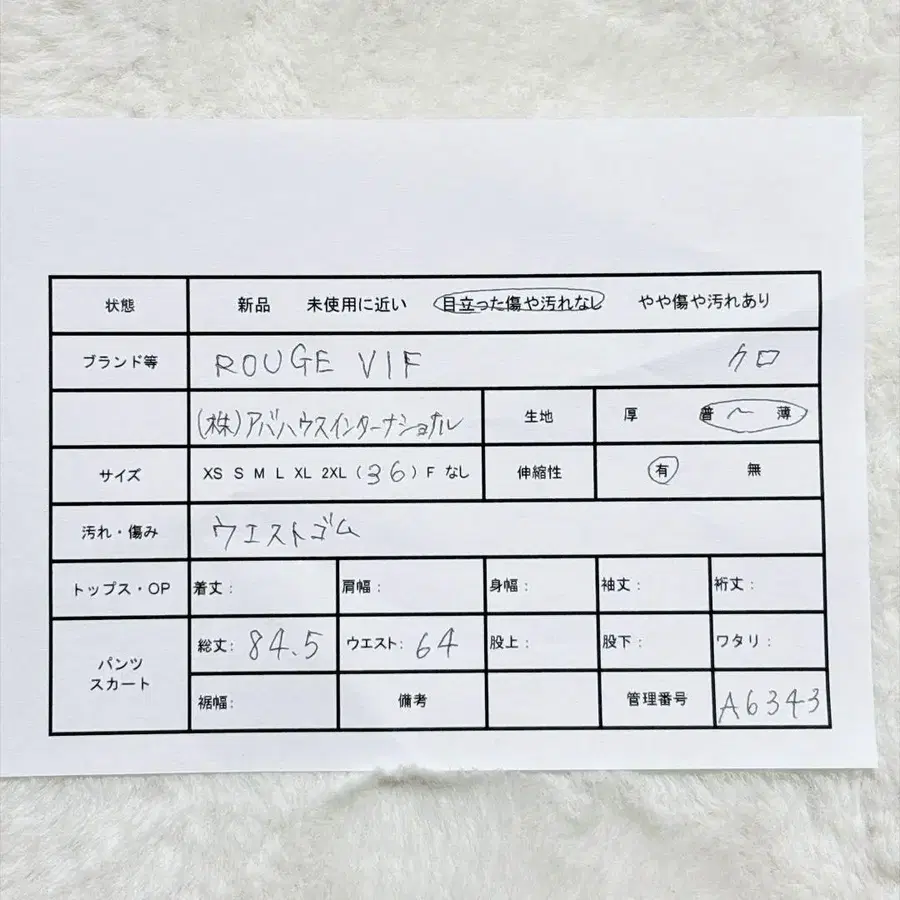 状態 新品 未使用に近い 目立った傷や汚れなし やや傷や汚れあり
ブランド等 ROUGE VIF クロ
(株)アバハウスインターナショナル 生地 厚 普 〜 薄
サイズ XS S M L XL 2XL (36) F なし 伸縮性 有 無
汚れ・傷み ウエストゴム
トップス・OP 着丈: 肩幅: 身幅: 袖丈: 裄丈:
パンツ スカート
総丈: 84.5 ウエスト: 64 股上: 股下: ワタリ:
裾幅: 備考 管理番号 A6343